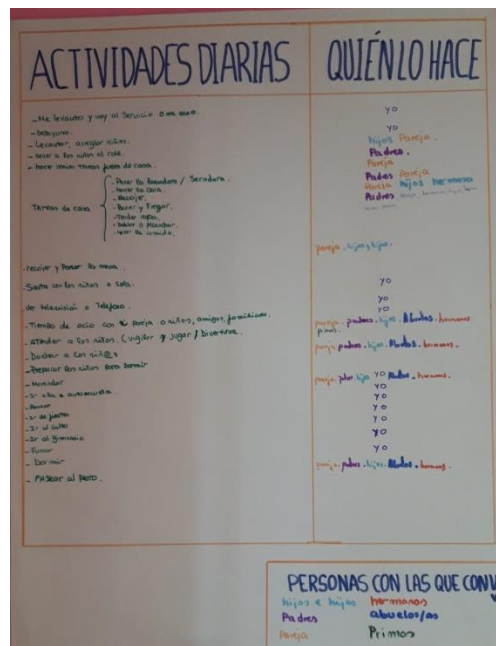 ACTIVIDADES DIARIAS
QUIÉN LO HACE
- Me levanto y voy al Servicio
- Desayuno.
- Levantar, arreglar niños.
- llevar a los niños al cole.
- hacer tareas fuera de casa.
Tareas de casa
- Poner la lavadora / Secadora.
- hacer la cama.
- Recojer.
- Barrer y Fregar.
- Tender ropa.
- hacer la comida.
- recojer y Poner la mesa.
- Siesta con los niños o Sola.
- Ver televisión o Teléfono.
- Tiempo de ocio con pareja o niños, amigos, familiares.
- Atender a los niños. (vigilar y jugar / Divertirse.
- Duchar a los niñ@s
- Preparar los niños para Dormir
- Ir a la autoescuela.
- Ir de fiesta
- Ir al culto
- Ir al Gimnasio
- Fumar
- Dormir
- PASear al perro.
yo
yo
hijos Pareja.
Padres.
Pareja
Padres Pareja
Pareja hijos hermana
Padres
pareja. hijos
yo
yo
yo
pareja. padres. hijos. Abuelos. hermanos.
primos.
pareja. padres. hijos. Abuelos. hermanos.
pareja. padres hijos yo Abuelos. hermanos.
yo
yo
yo
yo
yo
yo
yo
pareja. padres. hijos. Abuelos. hermanos.
PERSONAS CON LAS QUE CONV
hijos e hijas hermanos
Padres abuelos/as
Pareja Primos